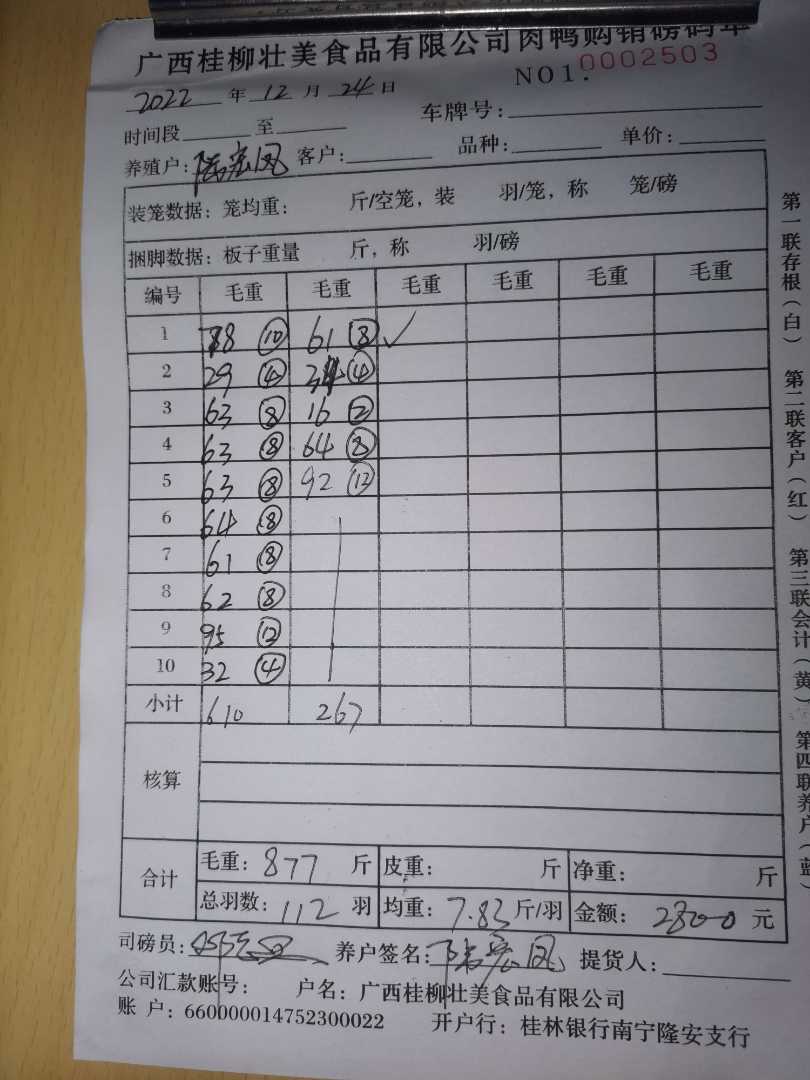 广西桂柳壮美食品有限公司肉鸭购销磅码单
NO1: 0002503
2022 年 12 月 24 日
时间段 至 车牌号:
养殖户: 陈宏凤 客户: 品种: 单价:
装笼数据: 笼均重: 斤/空笼, 装 羽/笼, 称 笼/磅
捆脚数据: 板子重量 斤, 称 羽/磅
编号 毛重 毛重 毛重 毛重 毛重 毛重
1 78 ⑩ 61 ⑧ ✓
2 29 ④ ④
3 63 ⑧ 16 ②
4 63 ⑧ 64 ⑧
5 63 ⑧ 92 ⑫
6 64 ⑧
7 61 ⑧
8 62 ⑧
9 95 ⑫
10 32 ④
小计 610 267
核算
合计 毛重: 877 斤 皮重: 斤 净重: 斤
总羽数: 112 羽 均重: 7.83 斤/羽 金额: 2800 元
司磅员: 养户签名: 陈宏凤 提货人:
公司汇款账号: 户名: 广西桂柳壮美食品有限公司
账 户: 660000014752300022 开户行: 桂林银行南宁隆安支行
第一联存根(白) 第二联客户(红) 第三联会计(黄) 第四联养户(蓝)